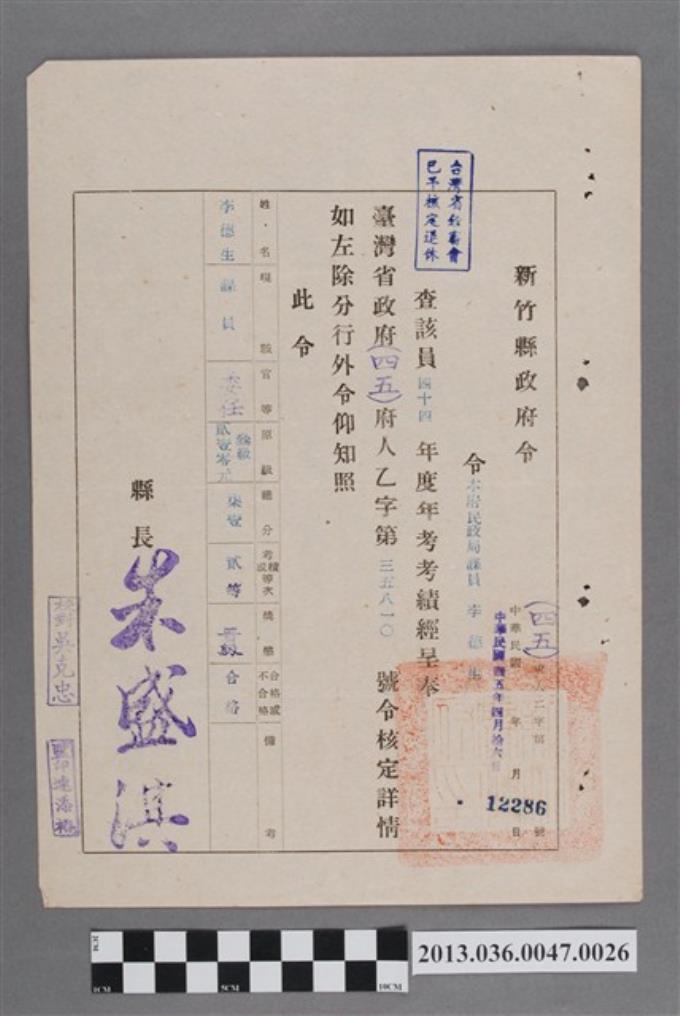 台灣省銓敘會
已予核定退休
新竹縣政府令
中華民國四五年四月拾六日
12286
令本府民政局課員李德生
查該員四十四年度年考考績經呈奉
臺灣省政府(四五)府人乙字第三五八一〇號令核定詳情
如左除分行外令仰知照
此令
姓名 現職 官等 原級 總分 考績等次或 獎懲 合格或不合格 備考
李德生 課員 委任 叁級貳壹零元 柒壹 貳等 晉級 合格
縣長 朱盛淇
校對吳克忠
監印
2CM
1CM 5CM 10CM
2013.036.0047.0026